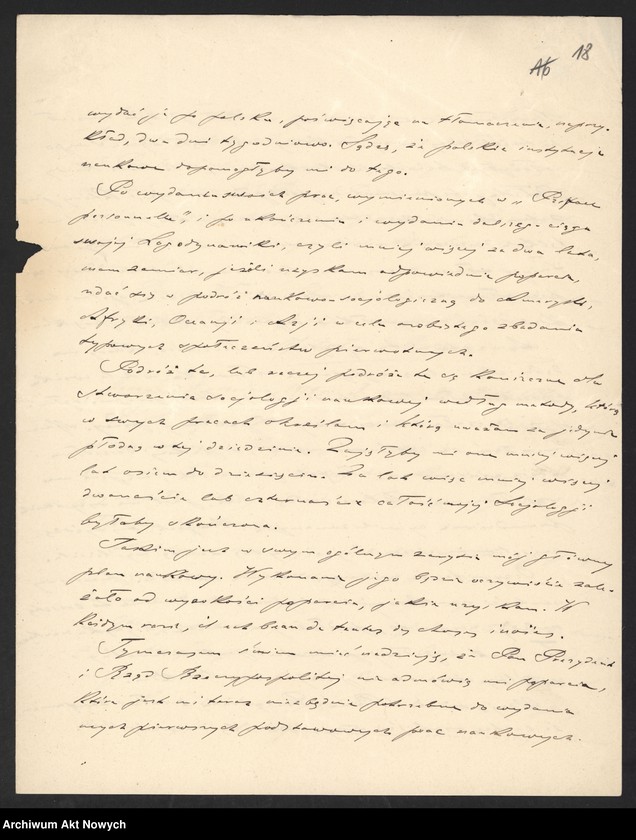 A6 18
wydać je po polsku, poświęcając na tłomaczenie, naprzy-
kład, dwa dni tygodniowo. Sądzę, że polskie instytucje
naukowe dopomogłyby mi do tego.
Po wydaniu swoich prac, wymienionych w „Préface
personnelle", i po ukończeniu i wydaniu dalszego ciągu
swojej Logodynamiki, czyli mniej więcej za dwa lata,
mam zamiar, jeżeli uzyskam odpowiednie poparcie,
udać się w podróż naukowo-socjologiczną do Ameryki,
Afryki, Oceanji i Azji w celu osobistego zbadania
typowych społeczeństw pierwotnych.
Podróż ta, lub raczej podróże te są konieczne dla
stworzenia socjologji naukowej według metody, którą
w swych pracach określam i którą uważam za jedynie
płodną w tej dziedzinie. Zajęłyby mi one mniej więcej
lat osiem do dziesięciu. Za lat więc mniej więcej
dwanaście lub czternaście całość mojej Socjologji
byłaby skończona.
Takim jest w swym ogólnym zarysie mój główny
plan naukowy. Wykonanie jego będzie oczywiście zale-
żało od wysokości poparcia, jakie uzyskam. W
każdym razie,
Tymczasem śmiem mieć nadzieję, że Pan Prezydent
i Rząd Rzeczypospolitej nie odmówią mi poparcia,
które jest mi teraz niezbędnie potrzebne do wydania
mych pierwszych podstawowych prac naukowych.
Archiwum Akt Nowych